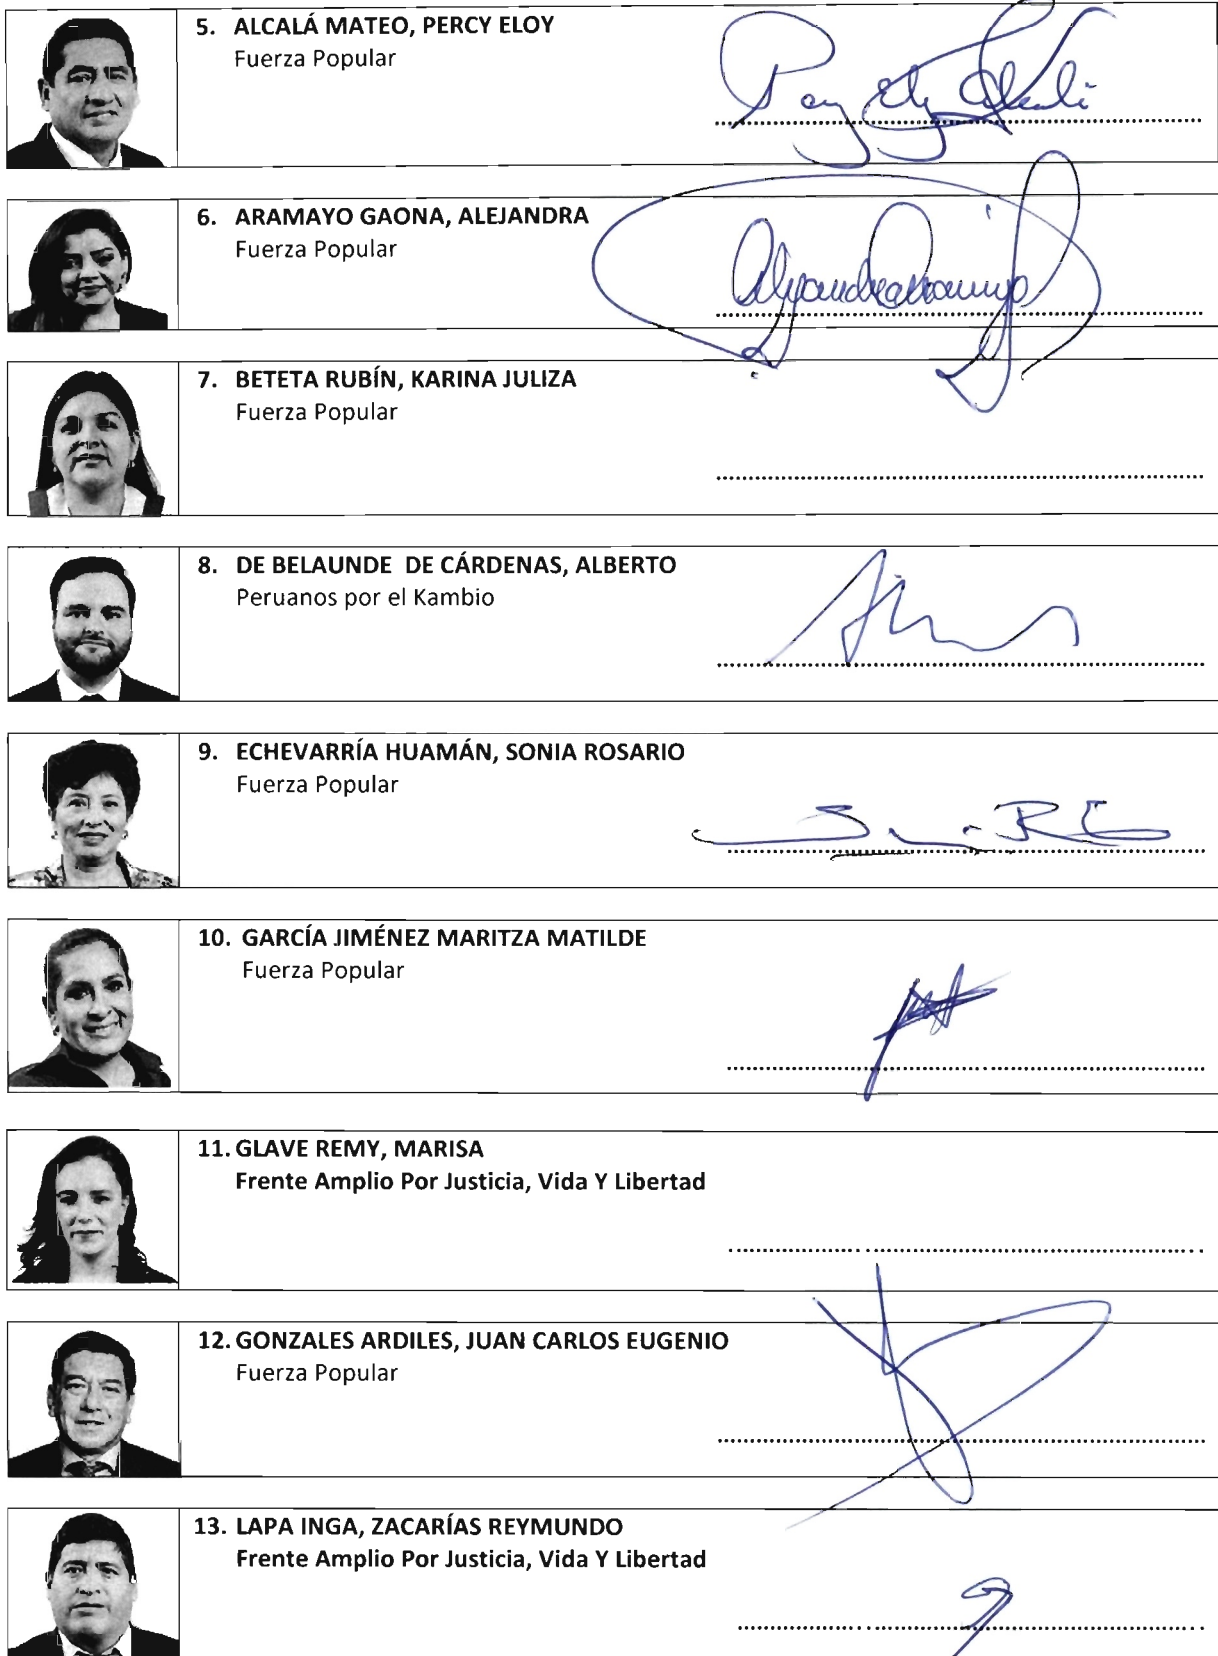 5. ALCALÁ MATEO, PERCY ELOY
Fuerza Popular
6. ARAMAYO GAONA, ALEJANDRA
Fuerza Popular
7. BETETA RUBÍN, KARINA JULIZA
Fuerza Popular
8. DE BELAUNDE DE CÁRDENAS, ALBERTO
Peruanos por el Kambio
9. ECHEVARRÍA HUAMÁN, SONIA ROSARIO
Fuerza Popular
10. GARCÍA JIMÉNEZ MARITZA MATILDE
Fuerza Popular
11. GLAVE REMY, MARISA
Frente Amplio Por Justicia, Vida Y Libertad
12. GONZALES ARDILES, JUAN CARLOS EUGENIO
Fuerza Popular
13. LAPA INGA, ZACARÍAS REYMUNDO
Frente Amplio Por Justicia, Vida Y Libertad